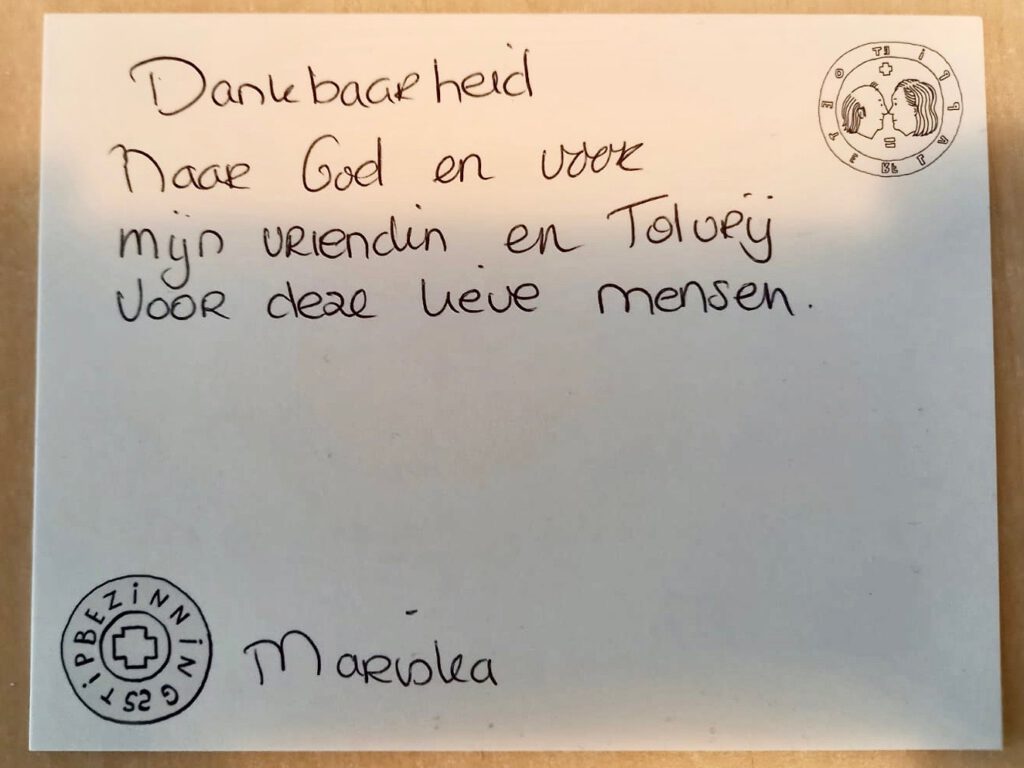 Dankbaarheid
naar God en voor
mijn vriendin en Tolvrij
voor deze lieve mensen.
BEZINNINGSSTIP
Mariska